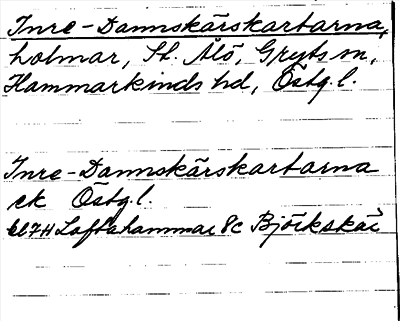 Inre-Dannskärskartarna,
holmar, St. Ålö, Gryts sn,
Hammarkinds hd, Östg.l.
Inre-Dannskärskartarna
ek Östg.l.
bl 7H Loftahammar 8c Björkskär